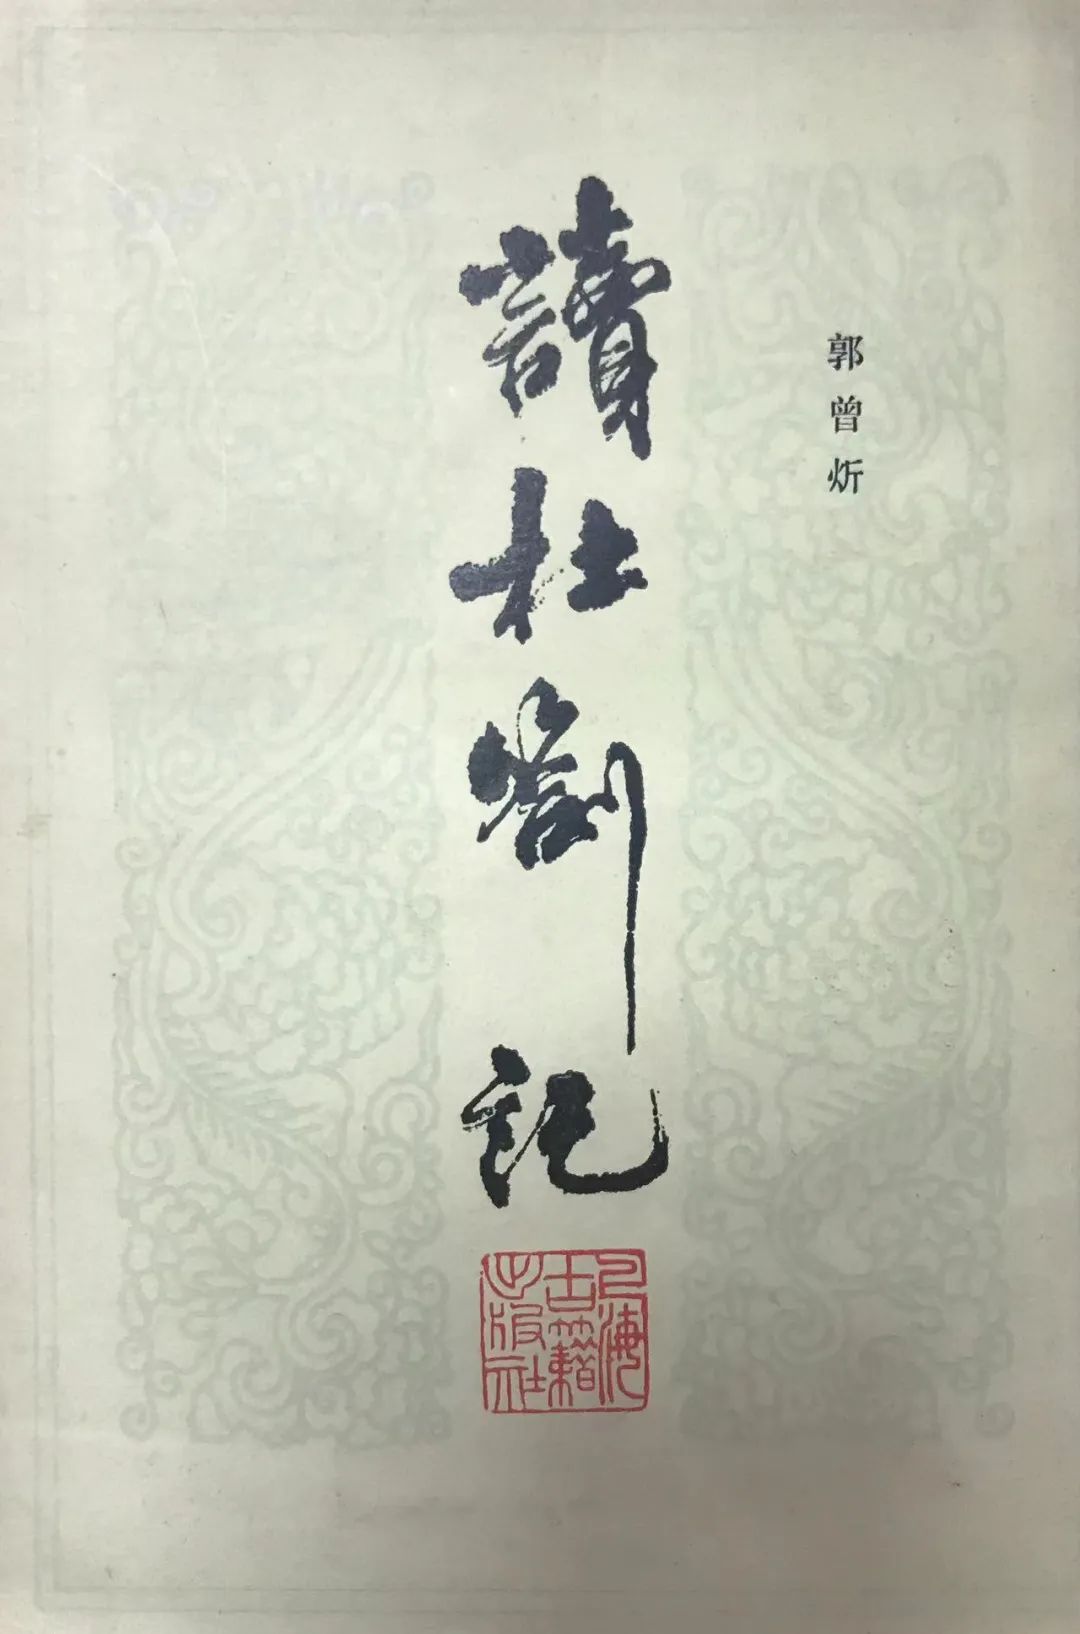 郭曾炘
讀杜劄記
上海
古籍
出版社